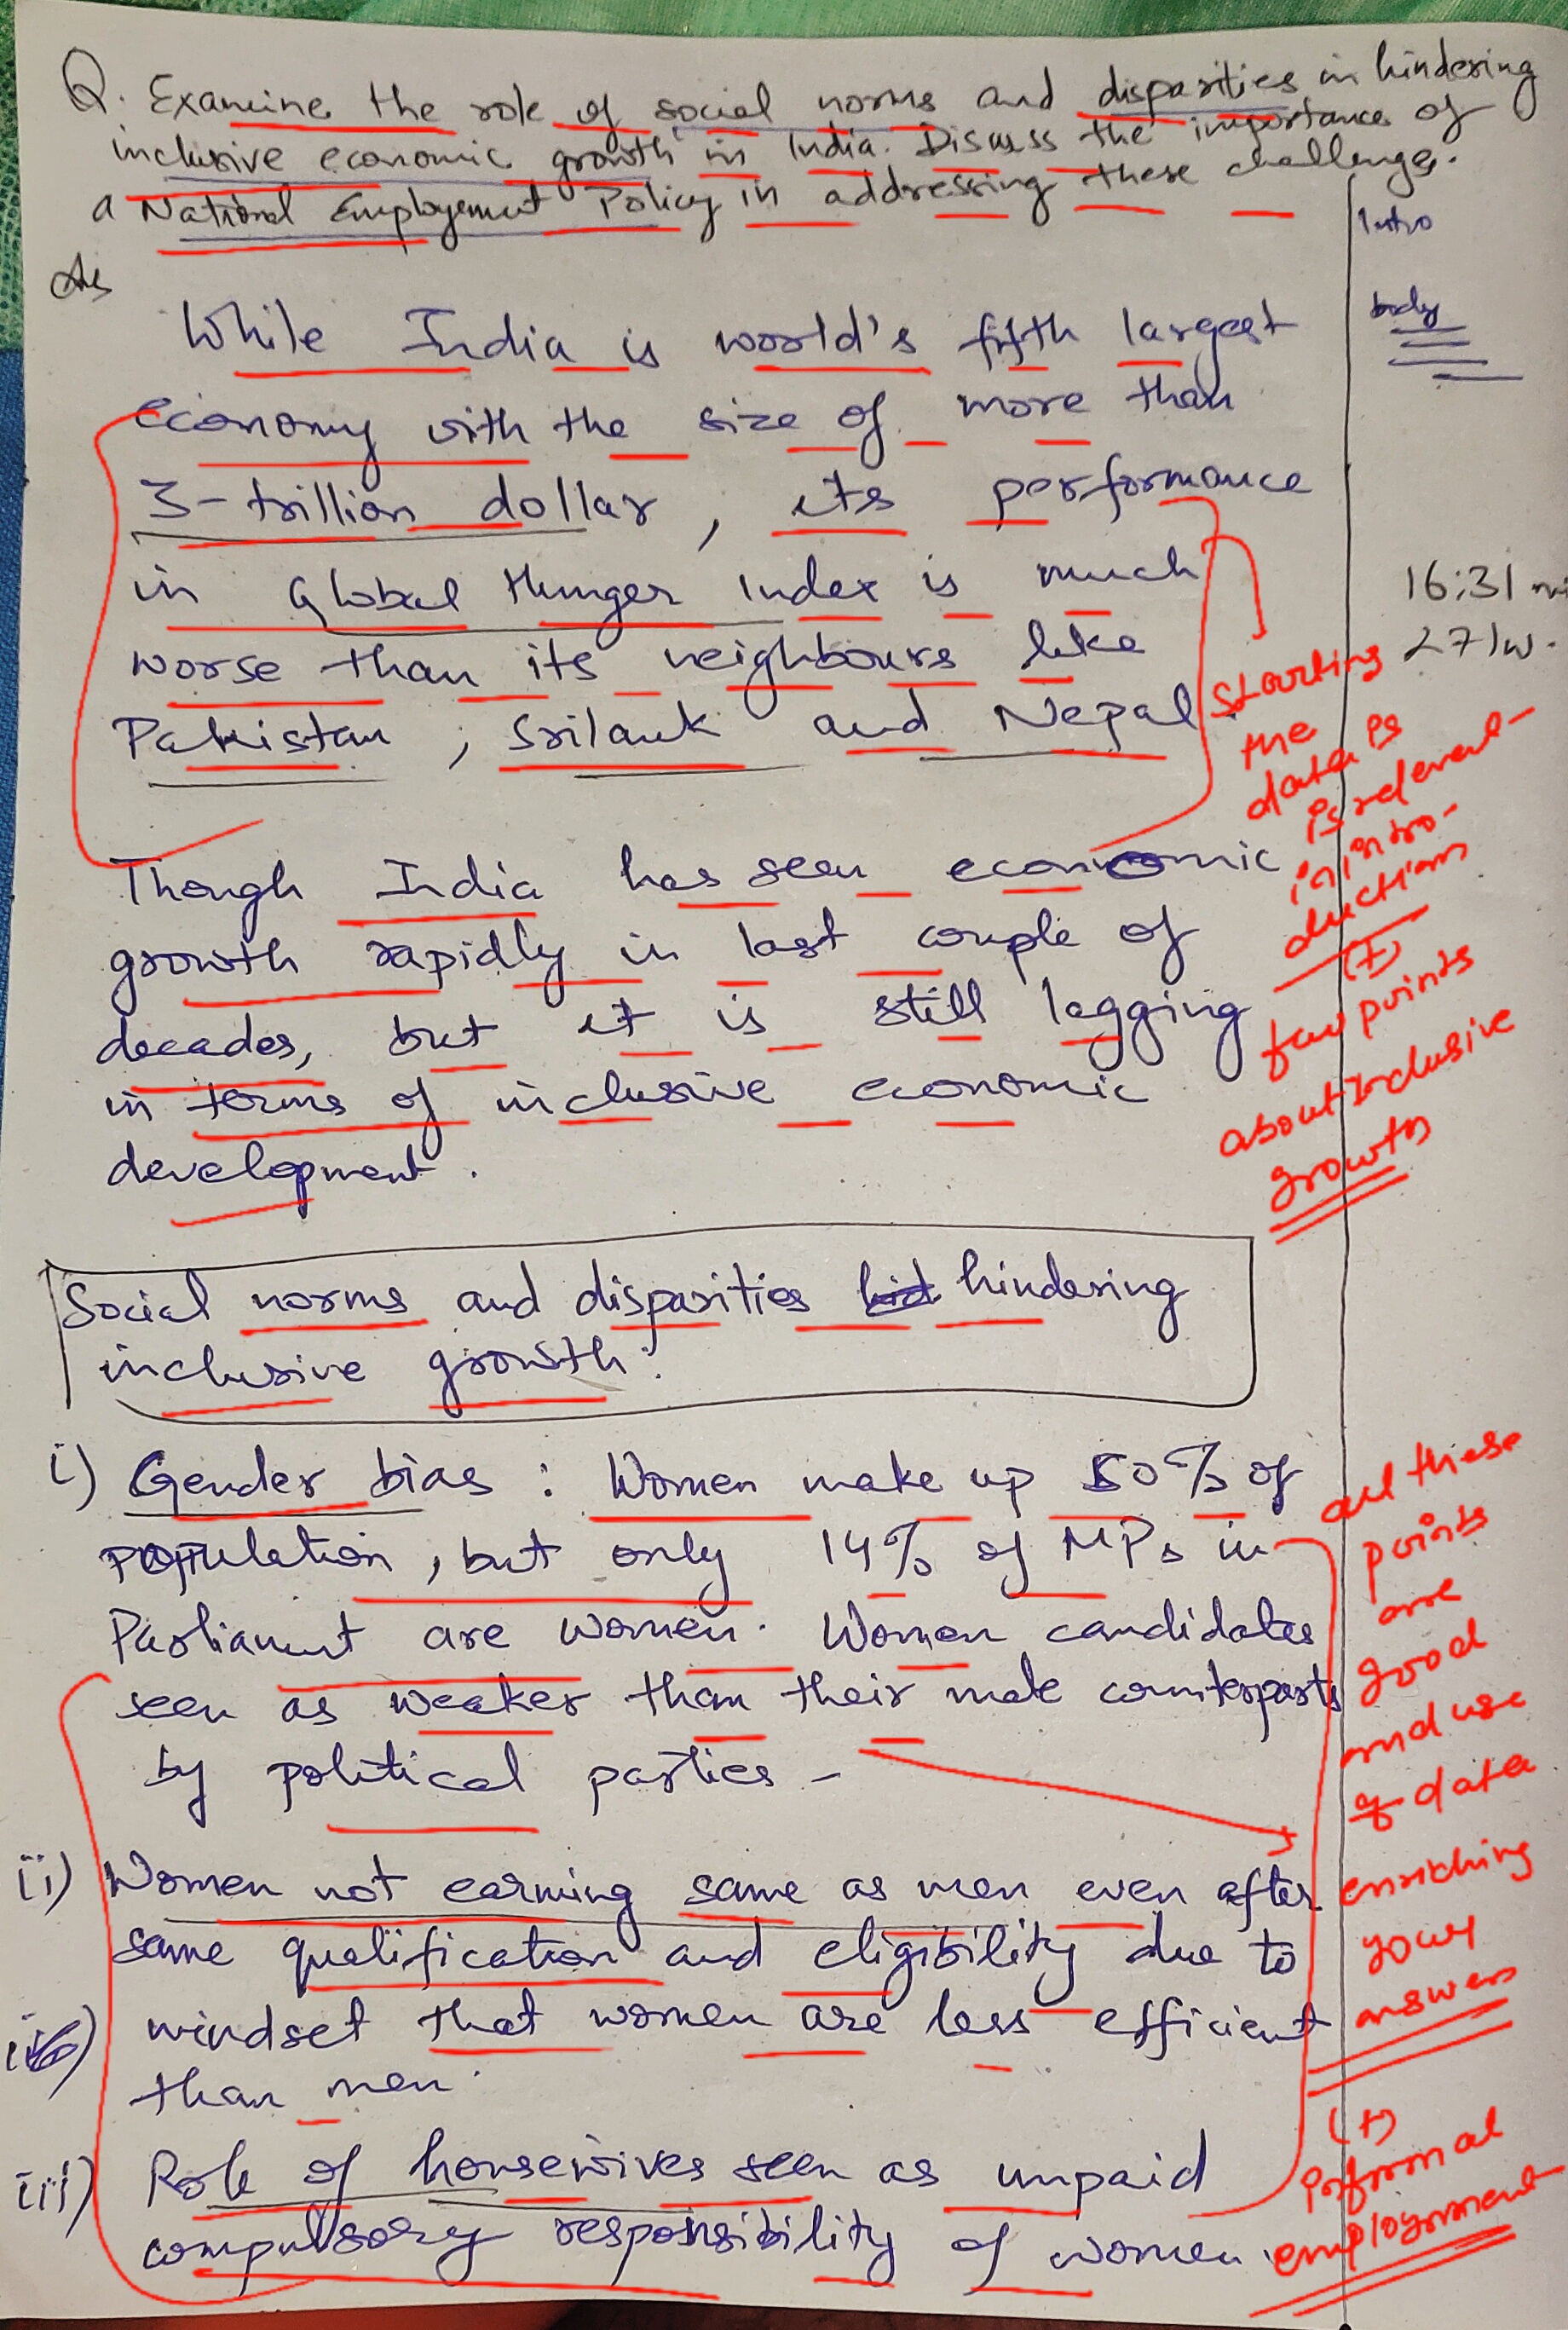 Q. Examine the role of social norms and disparities in hindering
inclusive economic growth in India. Discuss the importance of
a National Employement Policy in addressing these challenges.
Ans
Intro
body
While India is world's fifth largest
economy with the size of more than
3-trillion dollar, its performance
in Global Hunger Index is much
worse than its neighbours like
Pakistan, Srilank and Nepal.
16:31 mi
271w.
starting
the
data is
is relevant
in intro-
duction
(+)
few points
about inclusive
growth
Though India has seen economic
growth rapidly in last couple of
decades, but it is still lagging
in terms of inclusive economic
development.
Social norms and disparities hindering
inclusive growth:
i) Gender bias : Women make up 50% of
population, but only 14% of MPs in
Parliament are women. Women candidates
seen as weaker than their male counterparts
by political parties -
ii) Women not earning same as men even after
same qualification and eligibility due to
mindset that women are less efficient
than men.
iii) Role of housewives seen as unpaid
compulsory responsibility of women.
all these
points
are
good
and use
of data
enriching
your
answers
(+)
informal
employment